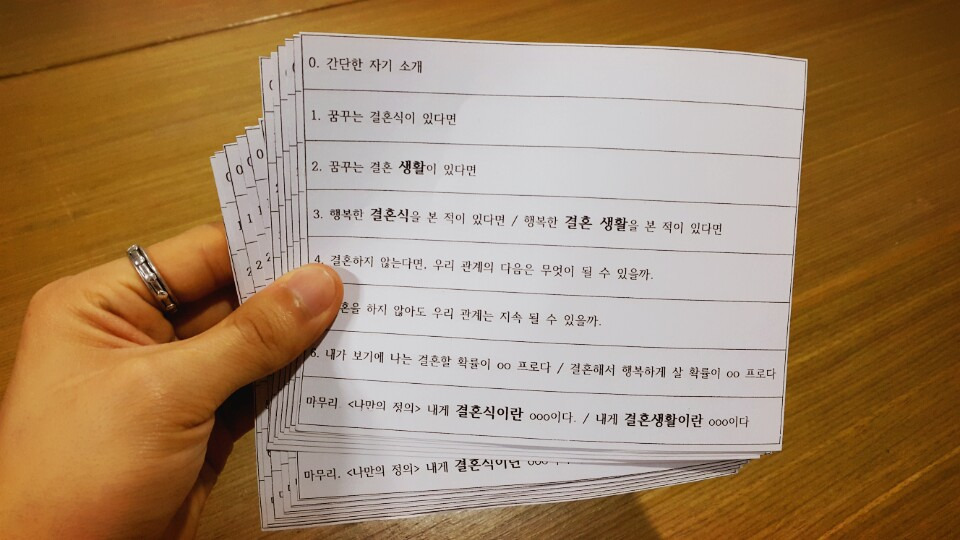 0. 간단한 자기 소개
1. 꿈꾸는 결혼식이 있다면
2. 꿈꾸는 결혼 생활이 있다면
3. 행복한 결혼식을 본 적이 있다면 / 행복한 결혼 생활을 본 적이 있다면
4. 결혼하지 않는다면, 우리 관계의 다음은 무엇이 될 수 있을까.
혼을 하지 않아도 우리 관계는 지속 될 수 있을까.
6. 내가 보기에 나는 결혼할 확률이 oo 프로다 / 결혼해서 행복하게 살 확률이 oo 프로다
마무리. <나만의 정의> 내게 결혼식이란 ooo이다. / 내게 결혼생활이란 ooo이다
마무리. <나만의 정의> 내게 결혼식이란